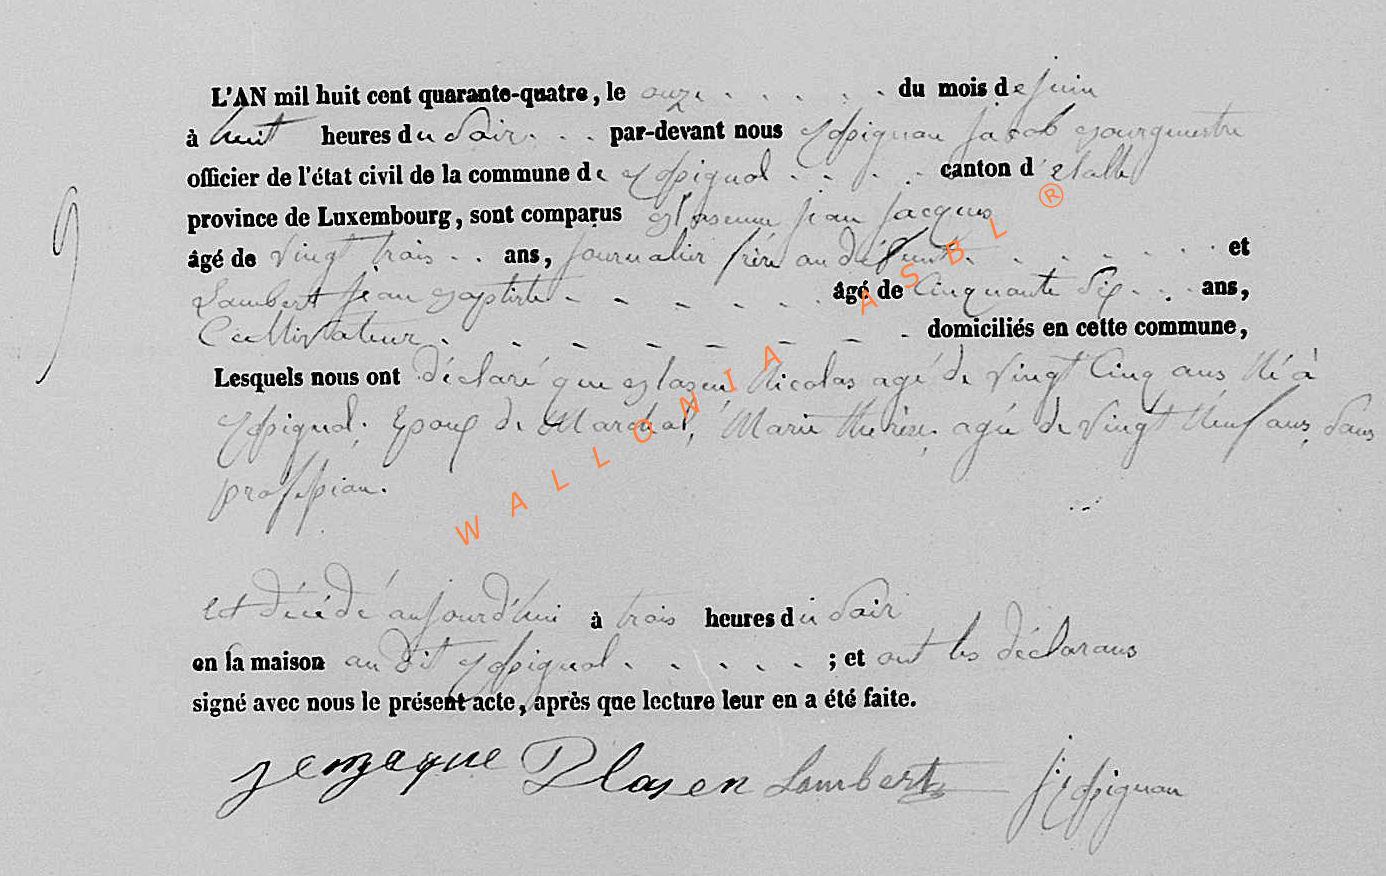 L'AN mil huit cent quarante-quatre, le onze du mois de juin
à huit heures du Soir par-devant nous Jacob Bourguestre
officier de l'état civil de la commune de canton d'etalle
province de Luxembourg, sont comparus Jean Jacques
âgé de vingt trois ans, journalier frère au défunt et
Lambert Jean baptiste âgé de Cinquante Six ans,
Cultivateur domiciliés en cette commune,
Lesquels nous ont déclaré que Nicolas agé de vingt Cinq ans Né à
Epoux de Maréchal, Marie thérèse, agée de vingt Neuf ans, Sans
profession.
Est décédé aujourd'hui à trois heures du Soir
en la maison au dit ; et ont les déclarans
signé avec nous le présent acte, après que lecture leur en a été faite.
jenjaque Lambert
9
WALLONIA ASBL ®